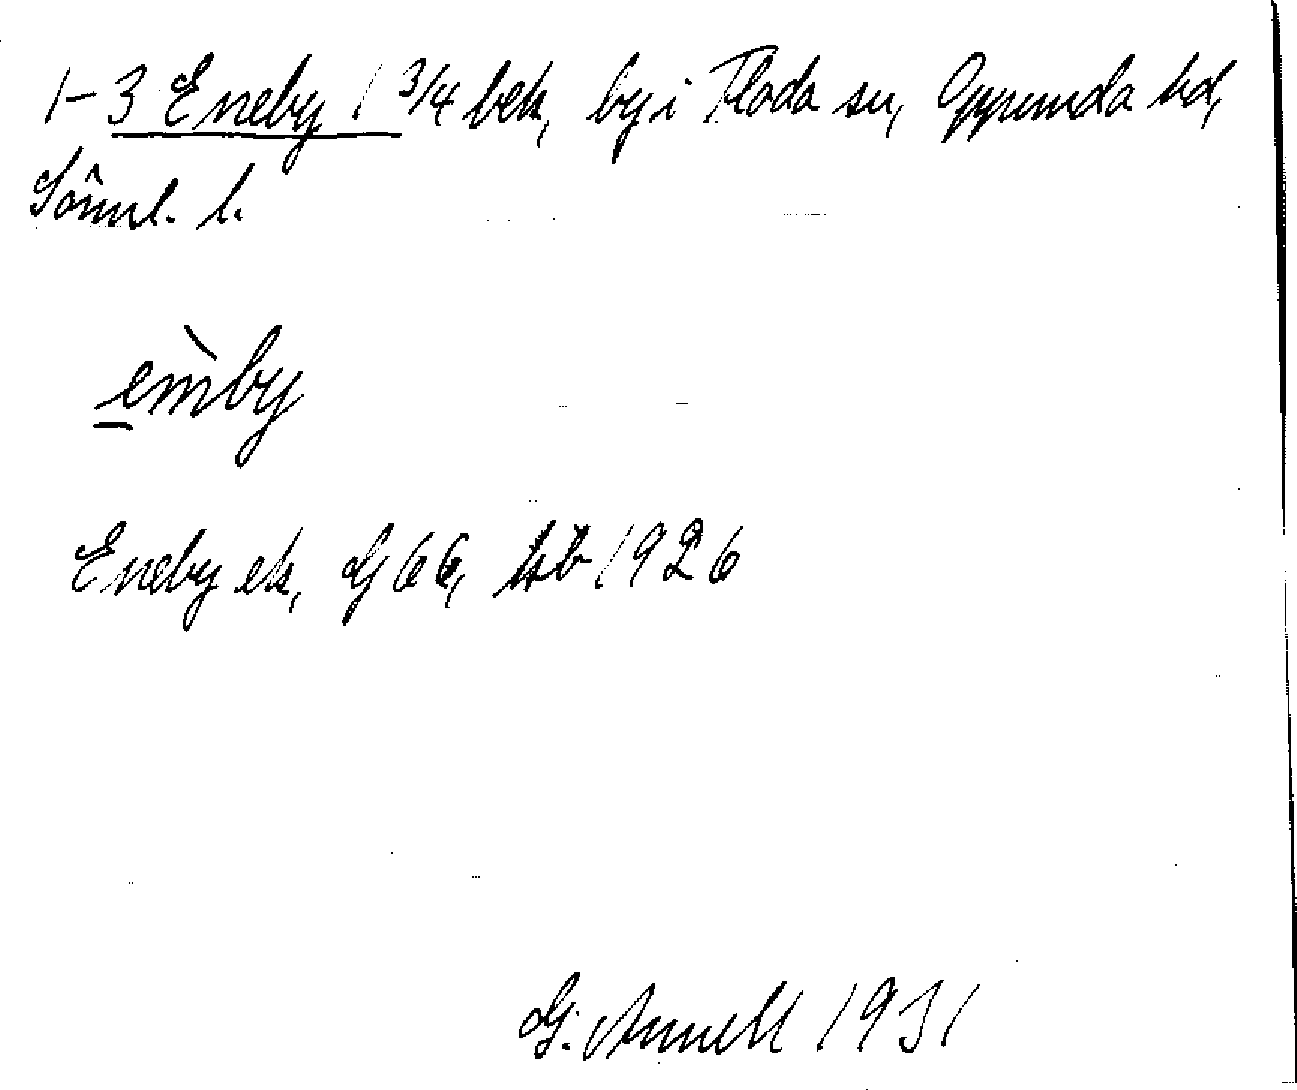 1-3 Eneby 1 3/4 bek, by i Floda sn, Oppunda hd,
Söml. l.
em̀by
Eneby ek, Gj 66, kb 1926
G. Annell 1931